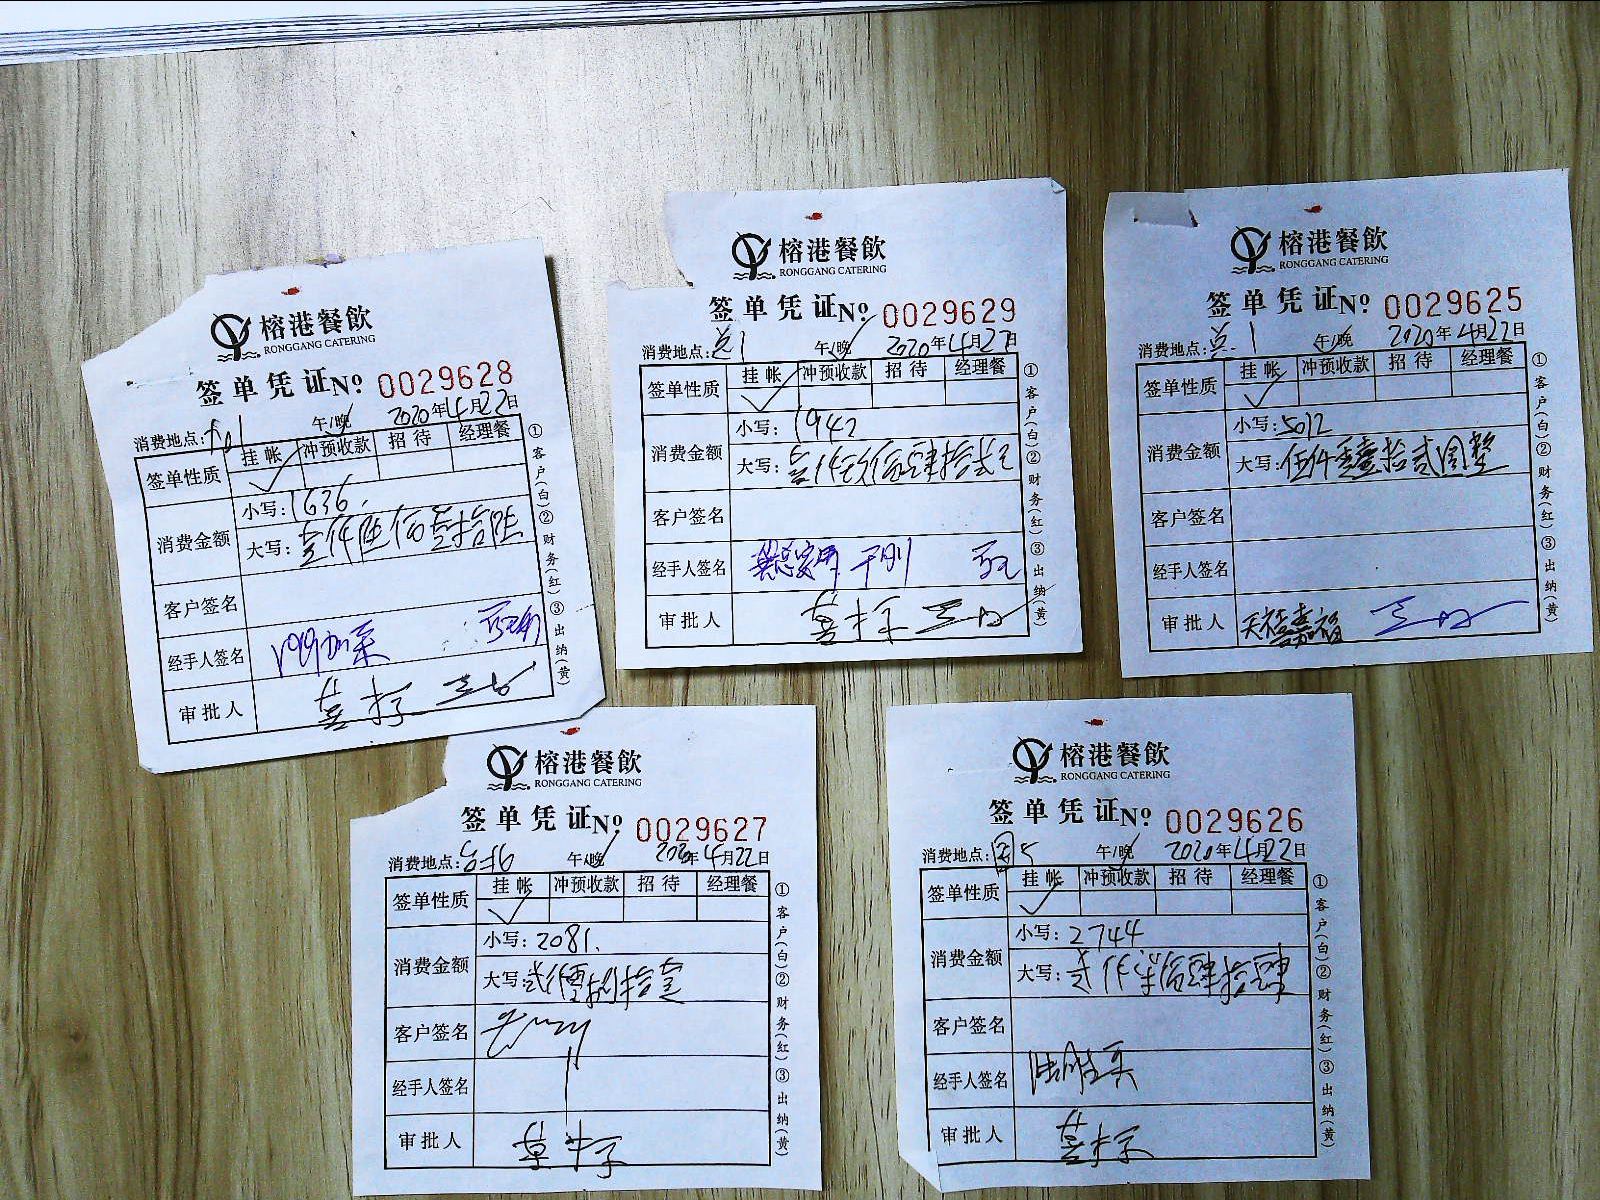 榕港餐飲
RONGGANG CATERING
签单凭证 No 0029628
消费地点: 午/晚 2020年4月22日
签单性质 挂帐 冲预收款 招待 经理餐
✓
消费金额 小写: 1636.
大写: 壹仟陆佰叁拾陆
客户签名
经手人签名
审批人
①客户(白)②财务(红)③出纳(黄)
榕港餐飲
RONGGANG CATERING
签单凭证 No 0029629
消费地点: 总1 午/晚 2020年4月22日
签单性质 挂帐 冲预收款 招待 经理餐
✓
消费金额 小写: 1942
大写: 壹仟玖佰肆拾贰元
客户签名
经手人签名
审批人
①客户(白)②财务(红)③出纳(黄)
榕港餐飲
RONGGANG CATERING
签单凭证 No 0029625
消费地点: 总1 午/晚 2020年4月22日
签单性质 挂帐 冲预收款 招待 经理餐
✓
消费金额 小写: 5012
大写: 伍仟零壹拾贰圆整
客户签名
经手人签名
审批人
①客户(白)②财务(红)③出纳(黄)
榕港餐飲
RONGGANG CATERING
签单凭证 No 0029627
消费地点: 午/晚 2020年4月22日
签单性质 挂帐 冲预收款 招待 经理餐
✓
消费金额 小写: 2081.
大写:
客户签名
经手人签名
审批人
①客户(白)②财务(红)③出纳(黄)
榕港餐飲
RONGGANG CATERING
签单凭证 No 0029626
消费地点: 午/晚 2020年4月22日
签单性质 挂帐 冲预收款 招待 经理餐
✓
消费金额 小写: 2744
大写:
客户签名
经手人签名
审批人
①客户(白)②财务(红)③出纳(黄)